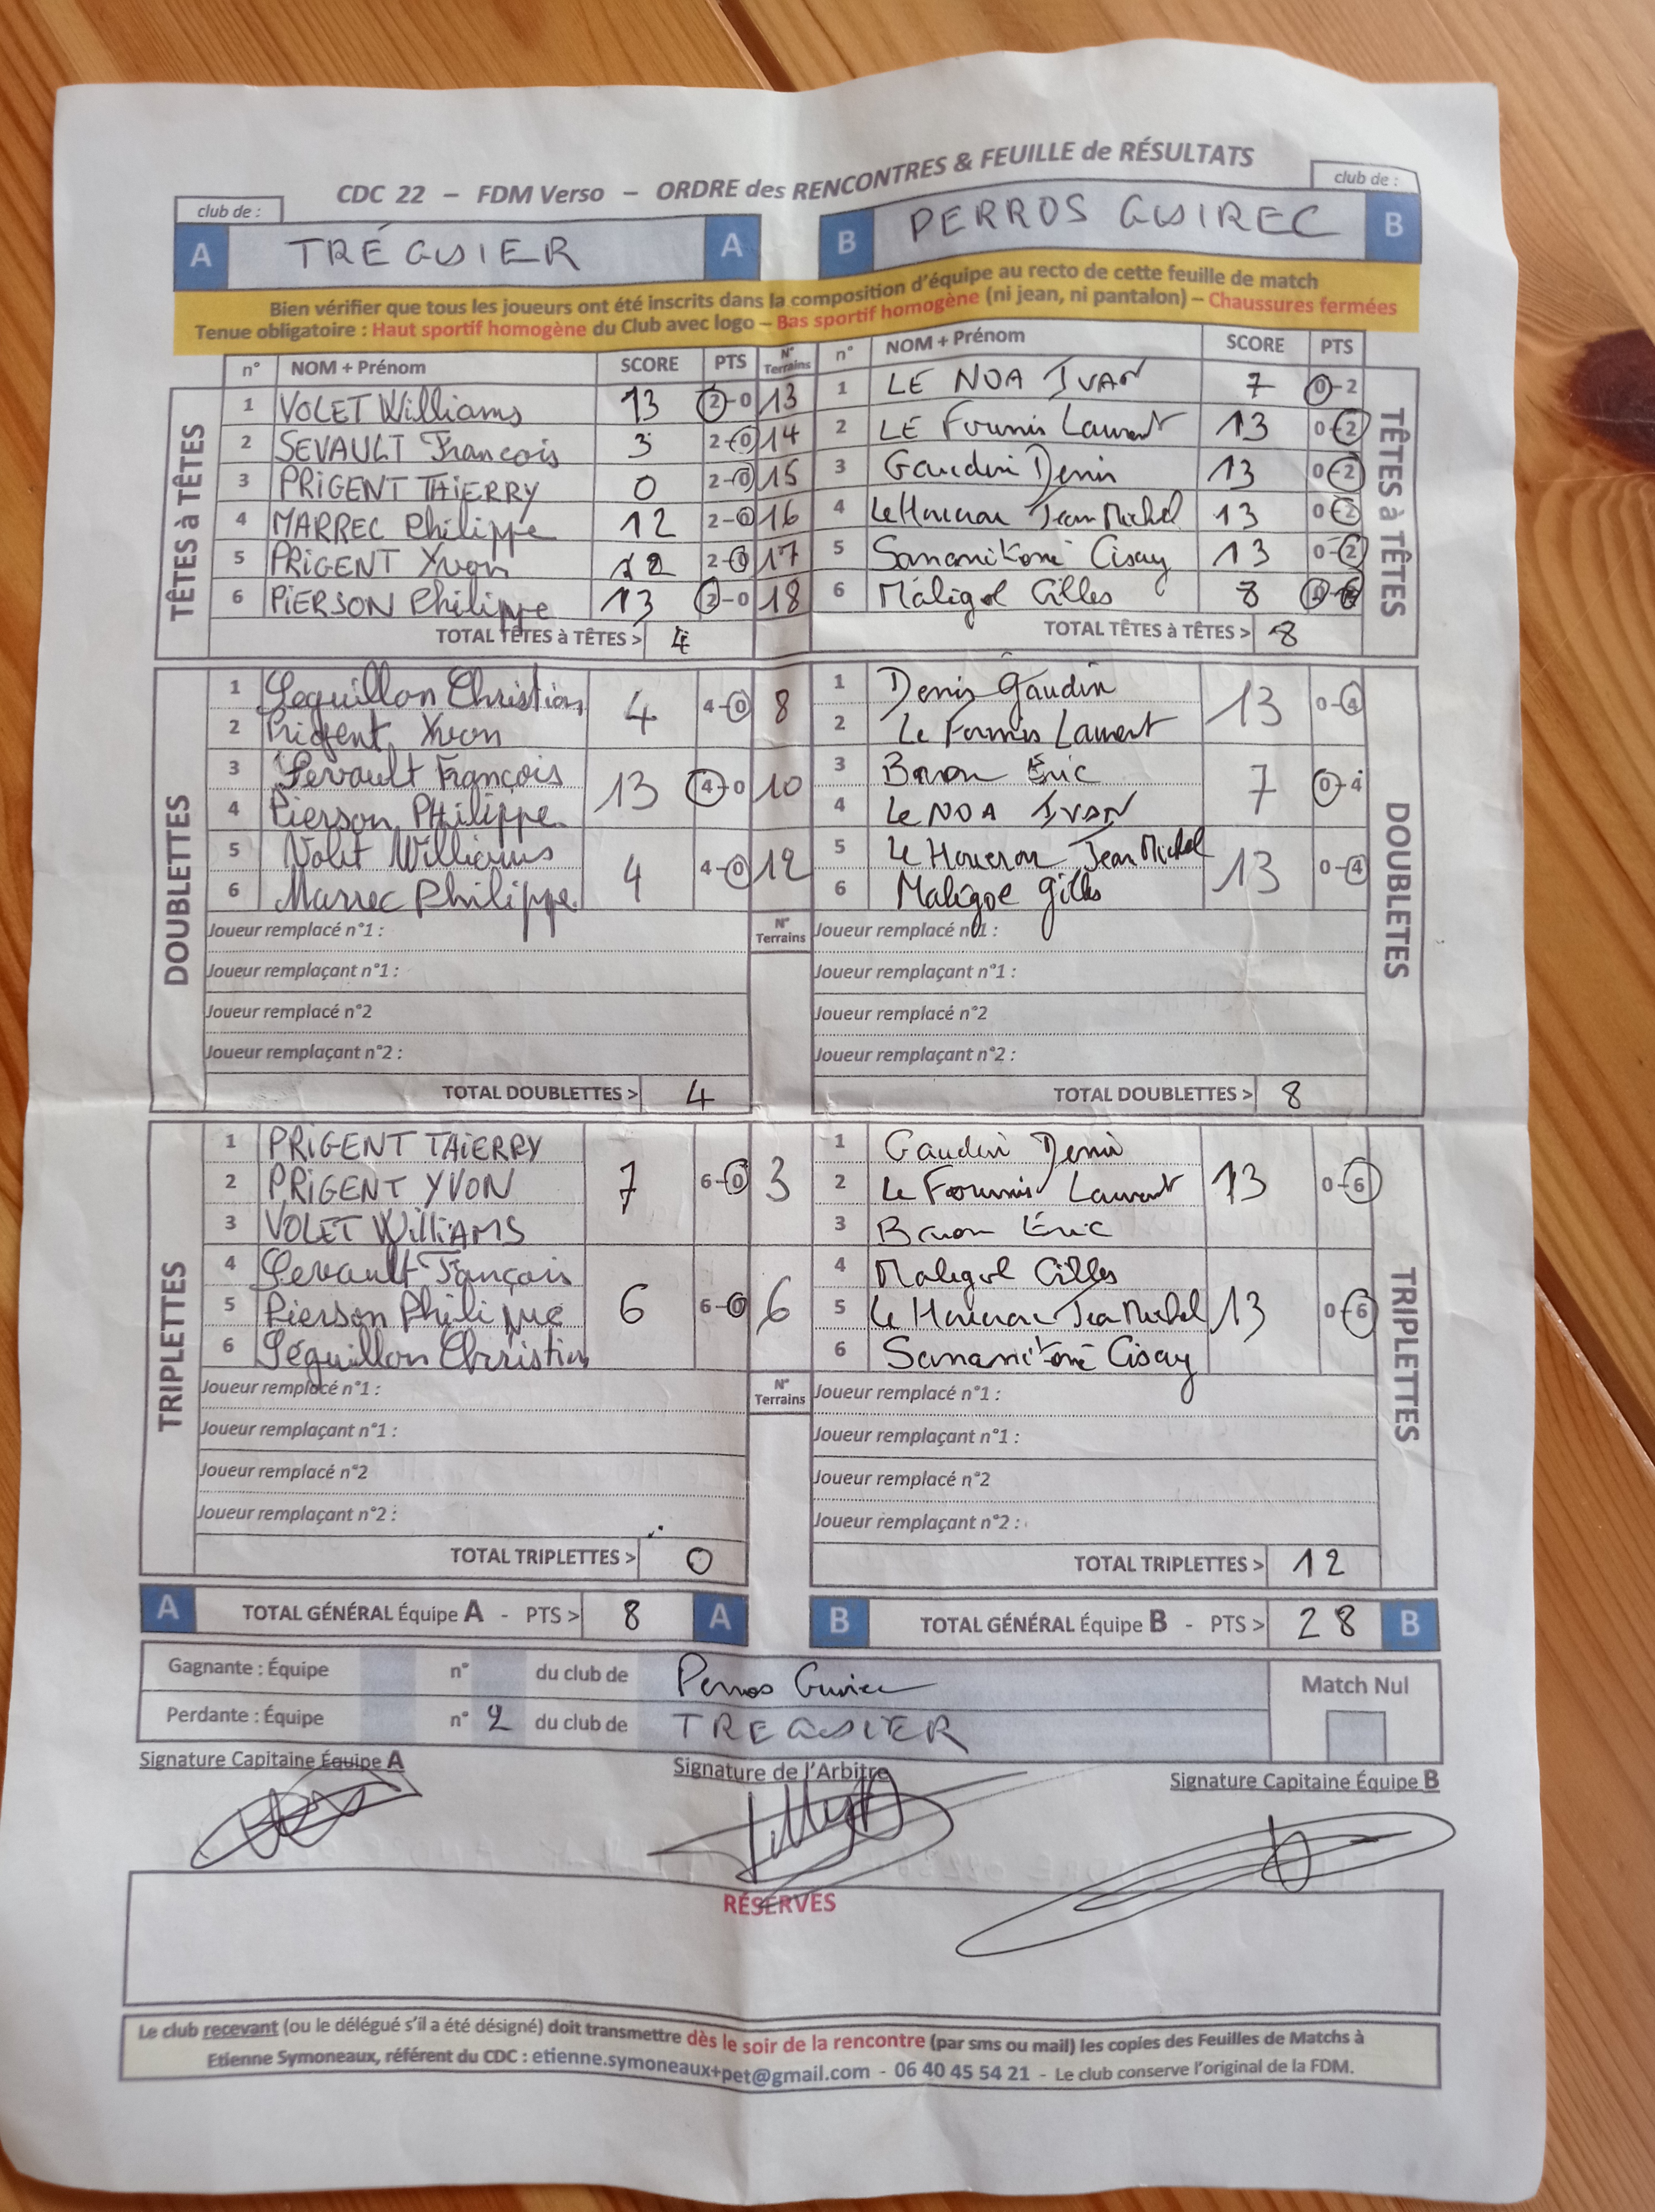 CDC 22 – FDM Verso – ORDRE des RENCONTRES & FEUILLE de RÉSULTATS
club de :
club de :
A TRÉGUIER A B PERROS GUIREC B
Bien vérifier que tous les joueurs ont été inscrits dans la composition d'équipe au recto de cette feuille de match
Tenue obligatoire : Haut sportif homogène du Club avec logo – Bas sportif homogène (ni jean, ni pantalon) – Chaussures fermées
n° NOM + Prénom SCORE PTS N° Terrains n° NOM + Prénom SCORE PTS
TÊTES à TÊTES
1 VOLET Williams 13 2-0 13 1 LE NOA IVAN 7 0-2
2 SEVAULT Francois 3 2-0 14 2 LE Fournis Laurent 13 0-2
3 PRIGENT THIERRY 0 2-0 15 3 Gaudin Denis 13 0-2
4 MARREC Philippe 12 2-0 16 4 Jean Michel 13 0-2
5 PRIGENT Yvon 12 2-0 17 5 13 0-2
6 PIERSON Philippe 13 2-0 18 6 Maligol Gilles 8
TÊTES à TÊTES
TOTAL TÊTES à TÊTES > 4 TOTAL TÊTES à TÊTES > 8
DOUBLETTES
1 Seguillon Christian 4 4-0 8 1 Denis Gaudin 13 0-4
2 Prigent Yvon 2 Le Fournis Laurent
3 Sevault François 13 4-0 10 3 Baron Éric 7 0-4
4 Pierson PHilippe 4 Le NOA IVAN
5 Volet Williams 4 4-0 12 5 Jean Michel 13 0-4
6 Marrec Philippe 6 Maligol gilles
DOUBLETES
Joueur remplacé n°1 : N° Terrains Joueur remplacé n°1 :
Joueur remplaçant n°1 : Joueur remplaçant n°1 :
Joueur remplacé n°2 Joueur remplacé n°2
Joueur remplaçant n°2 : Joueur remplaçant n°2 :
TOTAL DOUBLETTES > 4 TOTAL DOUBLETTES > 8
TRIPLETTES
1 PRIGENT THIERRY 7 6-0 3 1 Gaudin Denis 13 0-6
2 PRIGENT YVON 2 Le Fournis Laurent
3 VOLET WilliAMS 3 Baron Éric
4 Sevault François 6 6-0 6 4 Maligol Gilles 13 0-6
5 Pierson Philippe 5 Jean Michel
6 Séguillon Christian 6
TRIPLETTES
Joueur remplacé n°1 : N° Terrains Joueur remplacé n°1 :
Joueur remplaçant n°1 : Joueur remplaçant n°1 :
Joueur remplacé n°2 Joueur remplacé n°2
Joueur remplaçant n°2 : Joueur remplaçant n°2 :
TOTAL TRIPLETTES > 0 TOTAL TRIPLETTES > 12
A TOTAL GÉNÉRAL Équipe A - PTS > 8 A B TOTAL GÉNÉRAL Équipe B - PTS > 28 B
Gagnante : Équipe n° du club de Perros Guirec Match Nul
Perdante : Équipe n° 2 du club de TREGUIER
Signature Capitaine Équipe A Signature de l'Arbitre Signature Capitaine Équipe B
RÉSERVES
Le club recevant (ou le délégué s'il a été désigné) doit transmettre dès le soir de la rencontre (par sms ou mail) les copies des Feuilles de Matchs à
Etienne Symoneaux, référent du CDC : etienne.symoneaux+pet@gmail.com - 06 40 45 54 21 - Le club conserve l'original de la FDM.